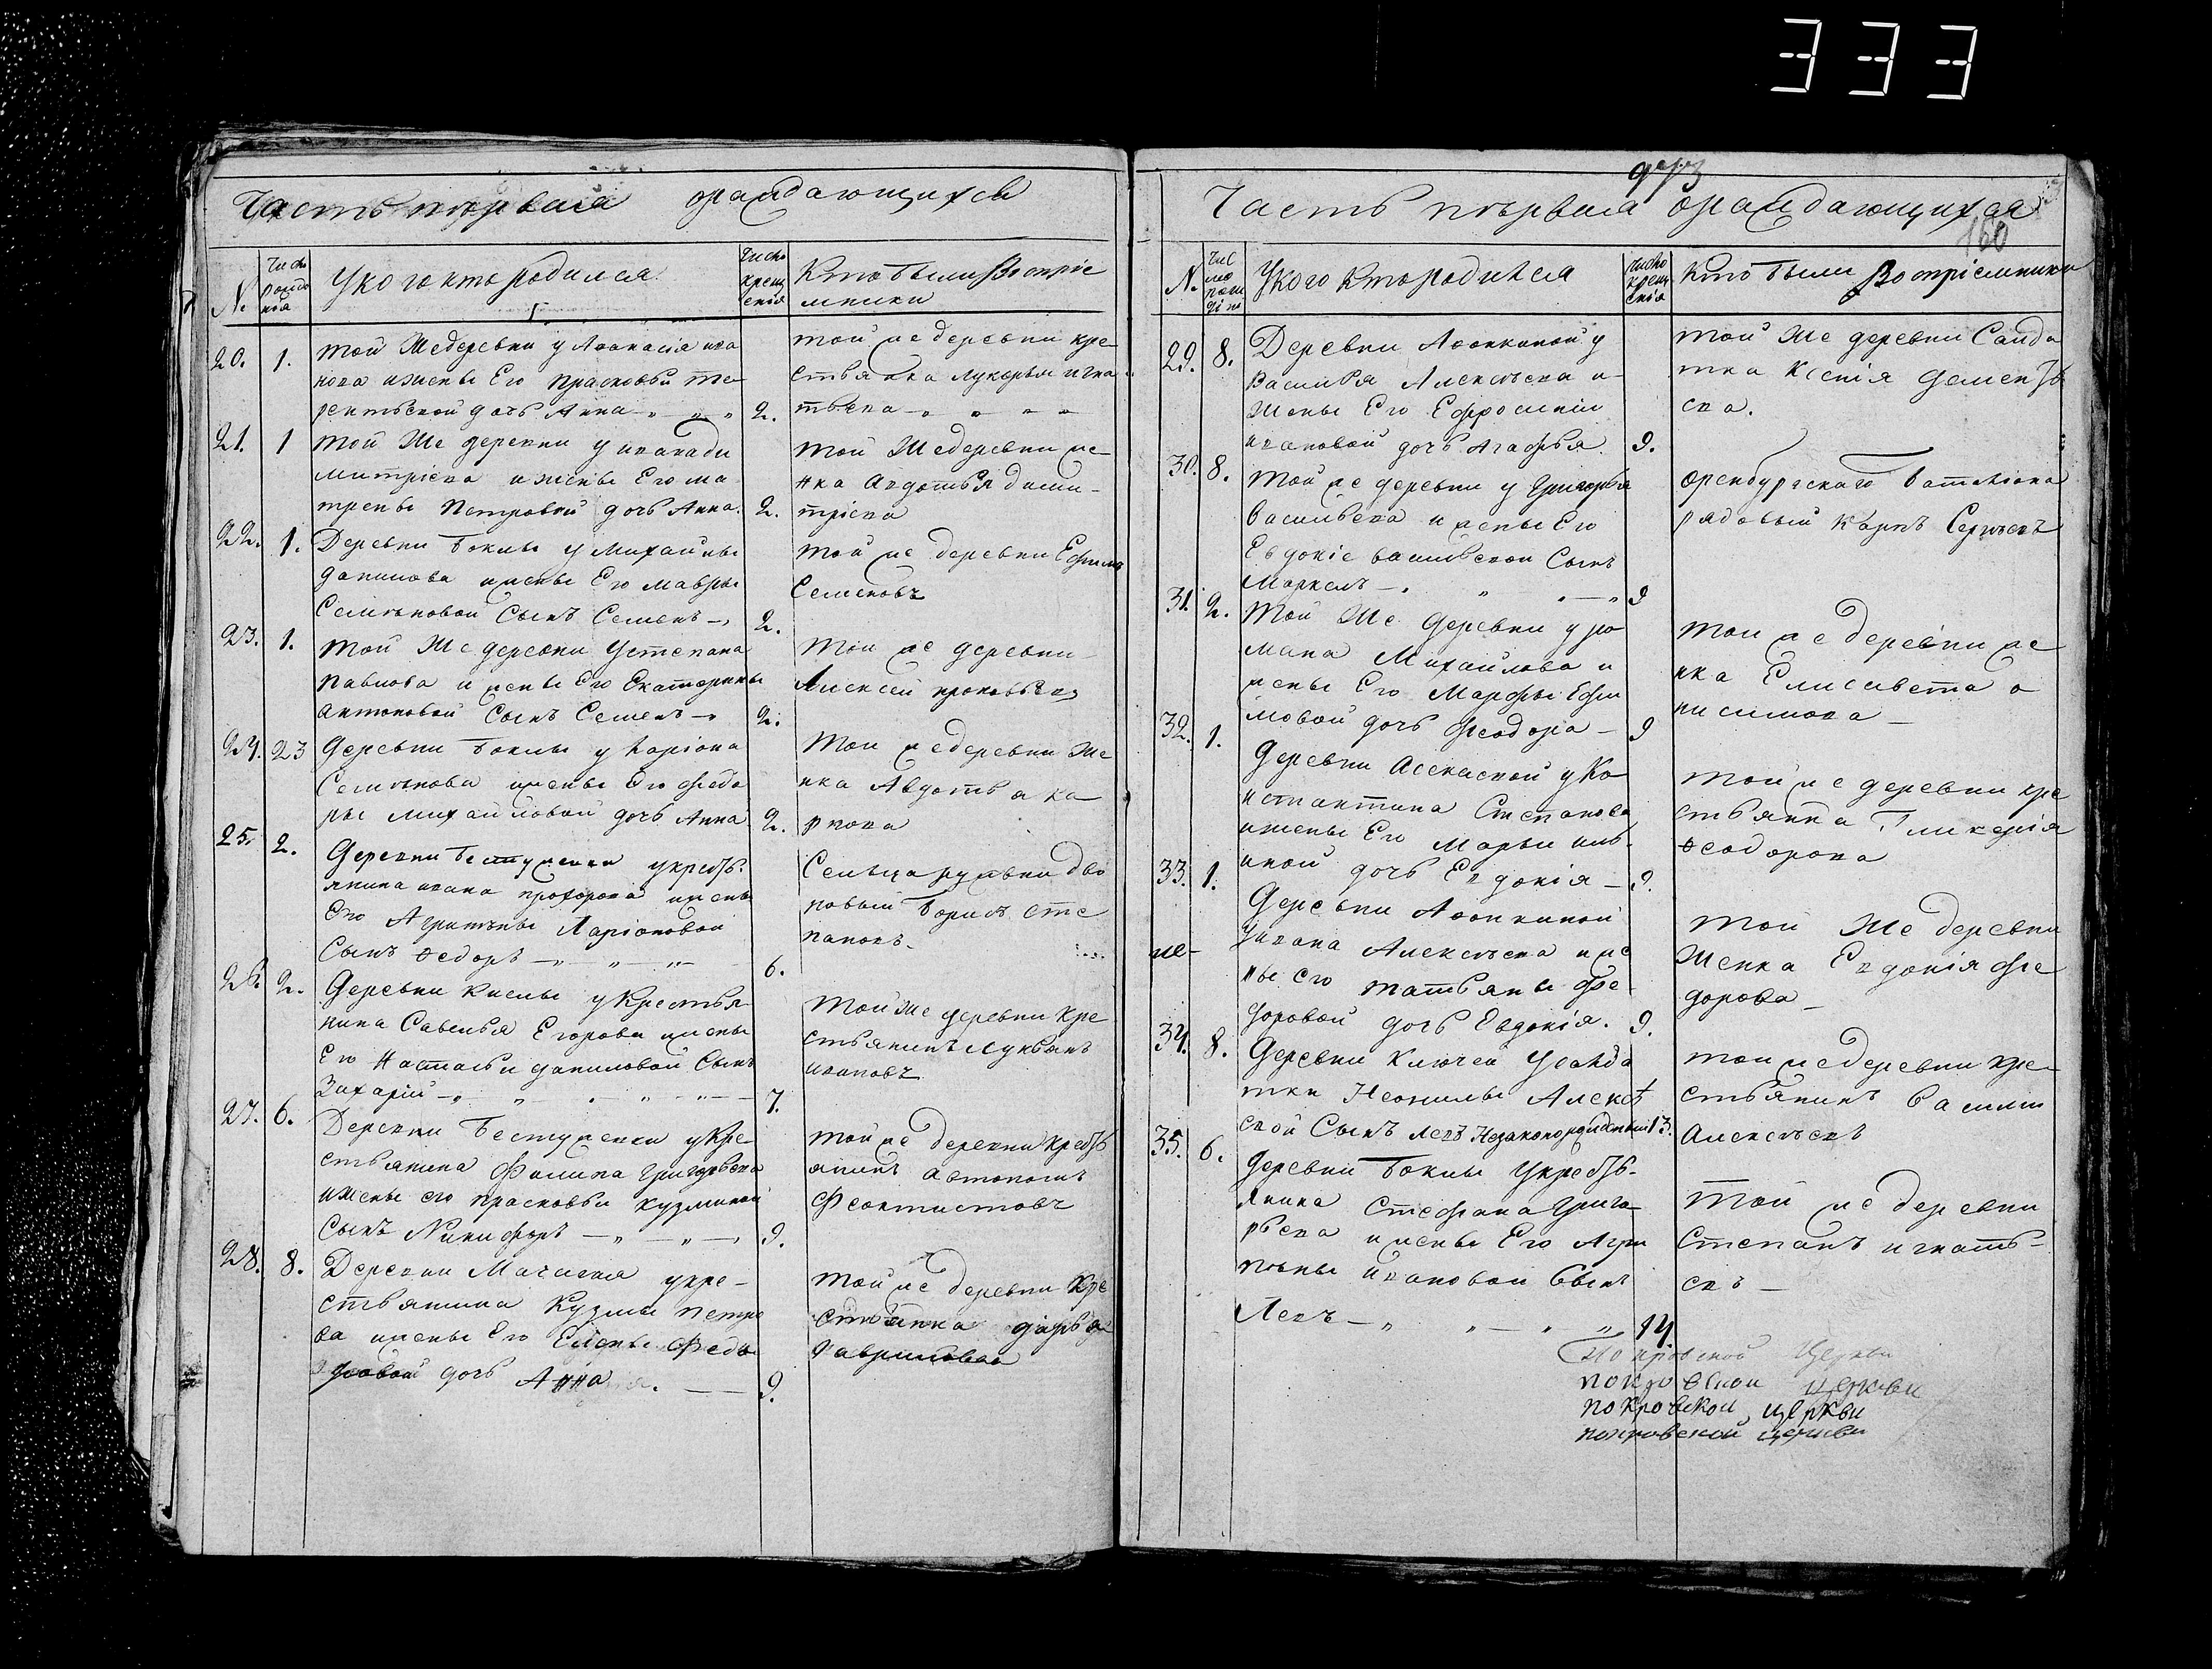 333
Часть первая ораждающихся
№
Число рождения
У кого кто родился
Число крещения
Кто были Воспріемники
20. 1. той же деревни у Афанасія ива
нова и жены Его Прасковьи те
рентьевой дочь Анна 2.
той же деревни кре
стьянка Лукерья игна
тьева
21. 1 той же деревни у ивана ди
митріева и жены Его ма
трены Петровой дочь Анна. 2.
той же деревни же
нка Авдотья дими
тріева
22. 1. Деревни Токмы у Михайлы
данилова и жены Его мавры
Семеновой Сынъ Семенъ 2.
той же деревни Ефимъ
Семеновъ
23. 1. той же деревни У степана
павлова и жены Его Екатерины
антоновой Сынъ Семенъ 2.
той же деревни
Алексей прокофьевъ
24. 23 деревни Токмы у Ларіона
Семенова и жены Его федо
ры михайловой дочь Анна 2.
той же деревни же
нка Авдотья ка
рпова
25. 2. деревни Бестужевки у крестъ
янина ивана прохорова и жены
Его Агрипены Ларіоновой
Сынъ Ѳедоръ 6.
Сельца румянцевки дво
ровый Борисъ сте
пановъ
26. 2. деревни кислы у крестья
нина Савелья Егорова и жены
Его Настасьи даниловой Сынъ
Захарій 7.
той же деревни кре
стьянинъ Лукьянъ
ивановъ
27. 6. Деревни Бестужевки у кре
стьянина Филипа григорьева
и жены его прасковьи кузминой
Сынъ Никифоръ 9.
той же деревни крестъ
янинъ автономъ
Феоктистовъ
28. 8. Деревни Мачагиа у кре
стьянина Кузмы петро
ва и жены Его Елены Федо
ровой дочь Анна. 9.
той же деревни кре
стьянка дарья
гаврилова
Часть первая ораждающихся
160
№
Число рождені
У кого кто родился
Число крещенія
Кто были Воспріемники
29. 8. Деревни Афонкиной у
василья Алексеева и
жены Его Ефросиніи
ивановой дочь Агафья. 9.
той же деревни Салда
тка Ксенія дементь
ева.
30. 8. той же деревни у григорья
васильева и жены Его
Евдокіе васильевой Сынъ
Маркелъ 9
оренбургскаго баталіона
рядовый карпъ Сергеевъ
31. 2. той же деревни у ро
мана Михайлова и
жены Его Марфы Ефи
мовой дочь Феодора 9
той же деревни же
нка Елисавета о
нисимова
32. 1. деревни Асекаевой у Ко
нстантина Степанова
и жены Его Марьи иль
иной дочь Евдокія 9.
той же деревни кре
стьянка Гликерія
Ѳеодорова
33. 1. деревни Афонкиной
У ивана Алексеева и же
ны его татьяны фе
доровой дочь Евдокія. 9.
той же деревни
женка Евдокія фе
дорова
34. 8. деревни Ключей У салда
тки Неонилы Алексе
евой Сынъ левъ Незаконорожденный 13.
той же деревни кре
стьянинъ василій
Алексеевъ
35. 6. деревни Токмы У крестъ
янина Стефана григо
рьева и жены Его Агри
пены ивановой Сынъ
Левъ 14
той же деревни
Степанъ игнатъ
евъ
покровской Церкви
покровской церкви
покровской церкви
покровской церкви